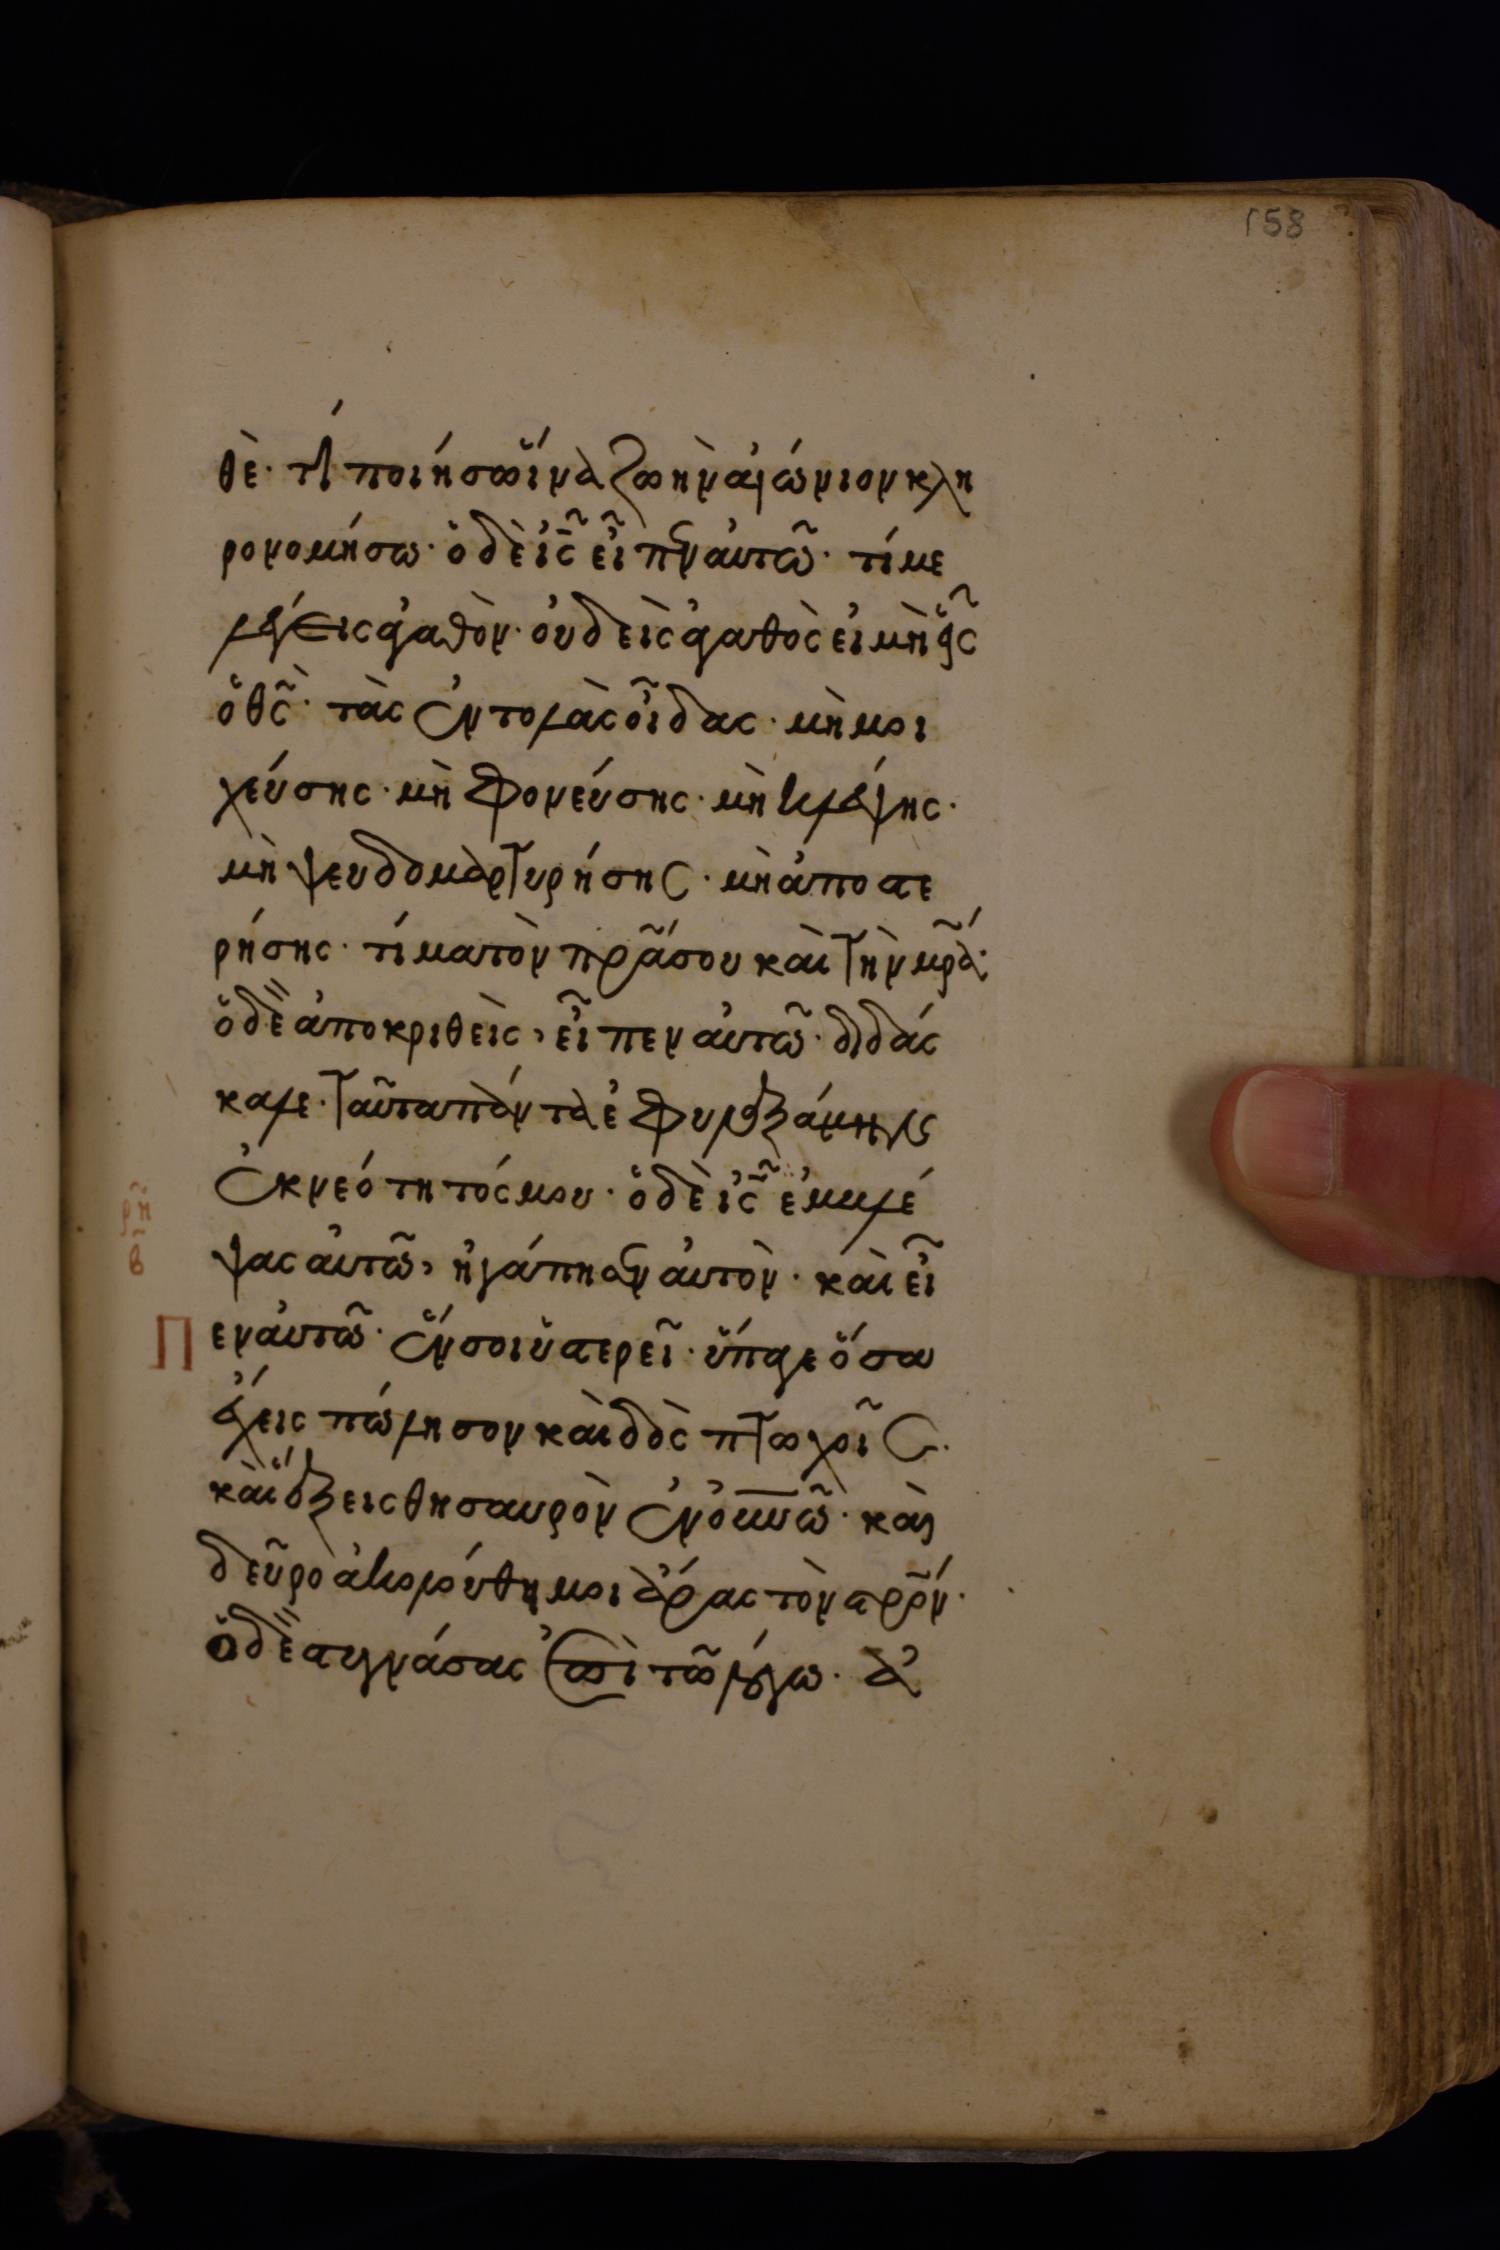 158
θὲ· τί ποιήσω ἵνα ζωὴν αἰώνιον κλη
ρονομήσω· ὁ δὲ ἰ̅ς̅ εἶπεν αὐτῶ· τί με
λέγεις ἀγαθὸν· οὐδεὶς ἀγαθὸς εἰ μὴ εἷς
ὁ θ̅ς̅· τὰς ἐντολὰς οἶδας· μὴ μοι
χεύσης· μὴ φονεύσης· μὴ κλέψης·
μὴ ψευδομαρτυρήσης· μὴ ἀποστε
ρήσης· τίμα τὸν π̅ρ̅α̅ σου καὶ τὴν μ̅ρ̅α̅·
ὁ δὲ ἀποκριθεὶς, εἶπεν αὐτῶ· διδάσ
καλε· ταῦτα πάντα ἐφυλαξάμην
ἐκ νεότητός μου· ὁ δὲ ἰ̅ς̅ ἐμβλέ
ρη
β
ψας αὐτῶ, ἠγάπησεν αὐτὸν· καὶ εἶ
Π εν αὐτῶ· ἕν σοι ὑστερεῖ· ὕπαγε ὅσα
ἔχεις πώλησον καὶ δὸς πτωχοῖς·
καὶ ἕξεις θησαυρὸν ἐν ο̅υ̅ν̅ῶ̅· καὶ
δεῦρο ἀκολούθη μοι ἄρας τὸν στ̅ρ̅ό̅ν̅·
ὁ δὲ στυγνάσας ἐπὶ τῶ λόγω· ἀ